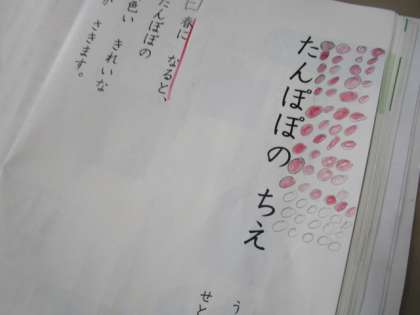 たんぽぽの ちえ
春に なると、
たんぽぽの
色い きれいな
さきます。